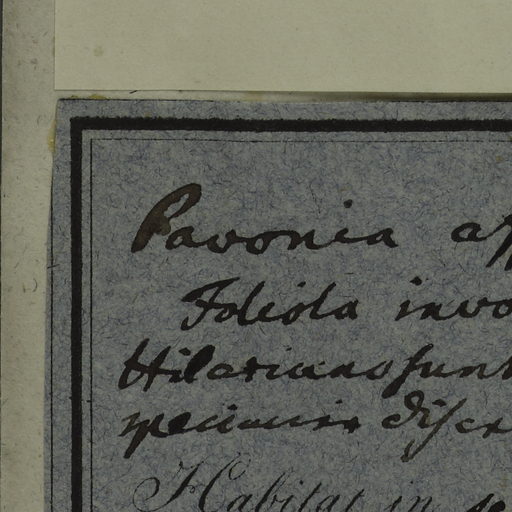 Pavonia aff
Foliola invo
Hilariano sunt
specimine discr
Habitat in se